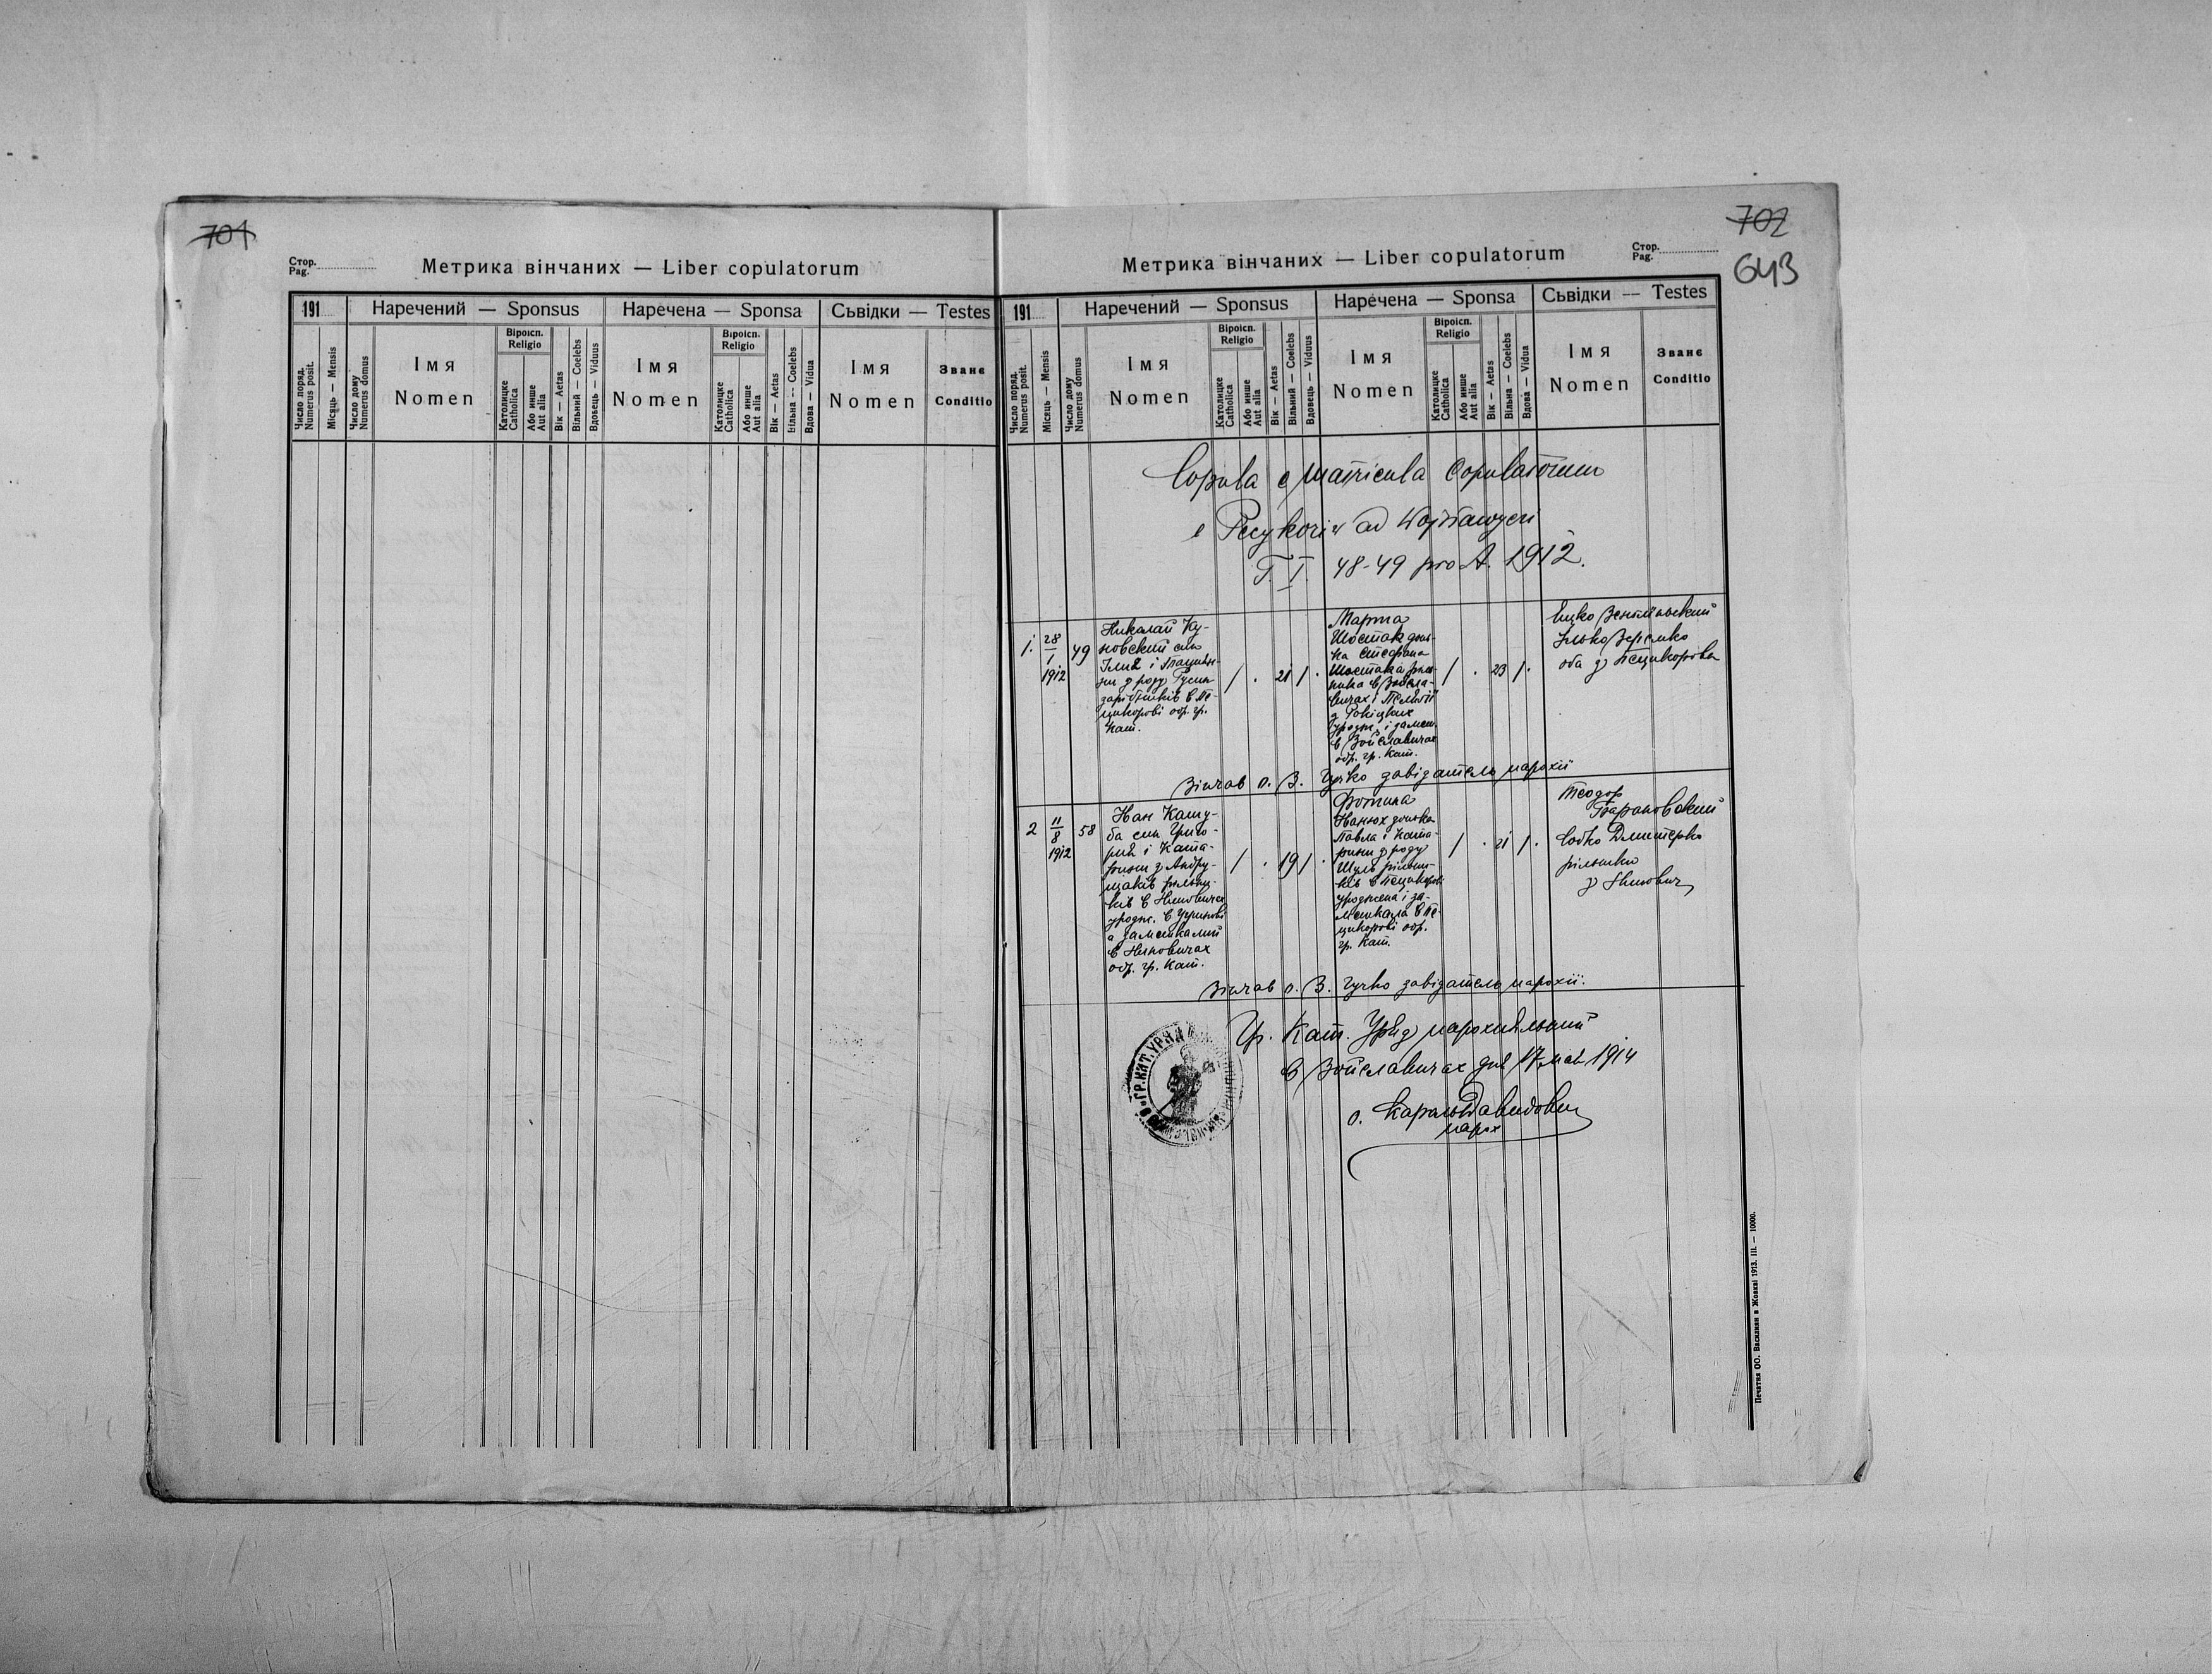 701
Стор.
Pag.
Метрика вінчаних — Liber copulatorum
191
Наречений — Sponsus
Наречена — Sponsa
Сьвідки — Testes
Число поряд.
Numerus posit.
Місяць — Mensis
Число дому
Numerus domus
Імя
Nomen
Віроісп.
Religio
Католицке
Catholica
Або инше
Aut alia
Вік — Aetas
Вільний — Coelebs
Вдовець — Viduus
Імя
Nomen
Віроісп.
Religio
Католицке
Catholica
Або инше
Aut alia
Вік — Aetas
Вільна — Coelebs
Вдова — Vidua
Імя
Nomen
Званє
Conditio
702
643
Стор.
Pag.
Метрика вінчаних — Liber copulatorum
191
Наречений — Sponsus
Наречена — Sponsa
Сьвідки — Testes
Число поряд.
Numerus posit.
Місяць — Mensis
Число дому
Numerus domus
Імя
Nomen
Віроісп.
Religio
Католицке
Catholica
Або инше
Aut alia
Вік — Aetas
Вільний — Coelebs
Вдовець — Viduus
Імя
Nomen
Віроісп.
Religio
Католицке
Catholica
Або инше
Aut alia
Вік — Aetas
Вільна — Coelebs
Вдова — Vidua
Імя
Nomen
Званє
Conditio
Copula e Matricula Copulatorum
e ad
T. I. 48-49 pro A. 1912.
1. 28
1
1912
49
Николай
син
Ілиї і
ни з роду
зарібників в Пе-
цикорові обр. гр.
кат.
/ . 21 / .
Марта
Шостак донь-
ка Стефана
Шостака ріль-
ника в Войсла-
вичах і
з
уродж. і замеш.
в Войславичах
обр. гр. кат.
/ . 23 / .
Ілько
оба з Пецикорова
Вінчав о. В. завідатель парохії
2 11
8
1912
58
Иван Кашу-
ба син Григо-
рия і Ката-
рини з Андру-
щаків рільни-
ків в
уродж. в Угринові
а замешкалий
в
обр. гр. кат.
/ . 19 / .
Фотина
Иванюх донька
Павла і Ката-
рини з роду
рільни-
ків в Пецикорові
уроджена і за-
мешкала в Пе-
цикорові обр.
гр. кат.
/ . 21 / .
Теодор
Барановский
Дмитерко
рільники
з
Вінчав о. В. завідатель парохії.
Гр. Кат. Уряд парохияльний
в Войславичах дня 17 мая 1914
о. Давидович
парох
ГР. КАТ. УРЯД
Печатня ОО. Василиян в Жовкві 1913. III. — 10000.